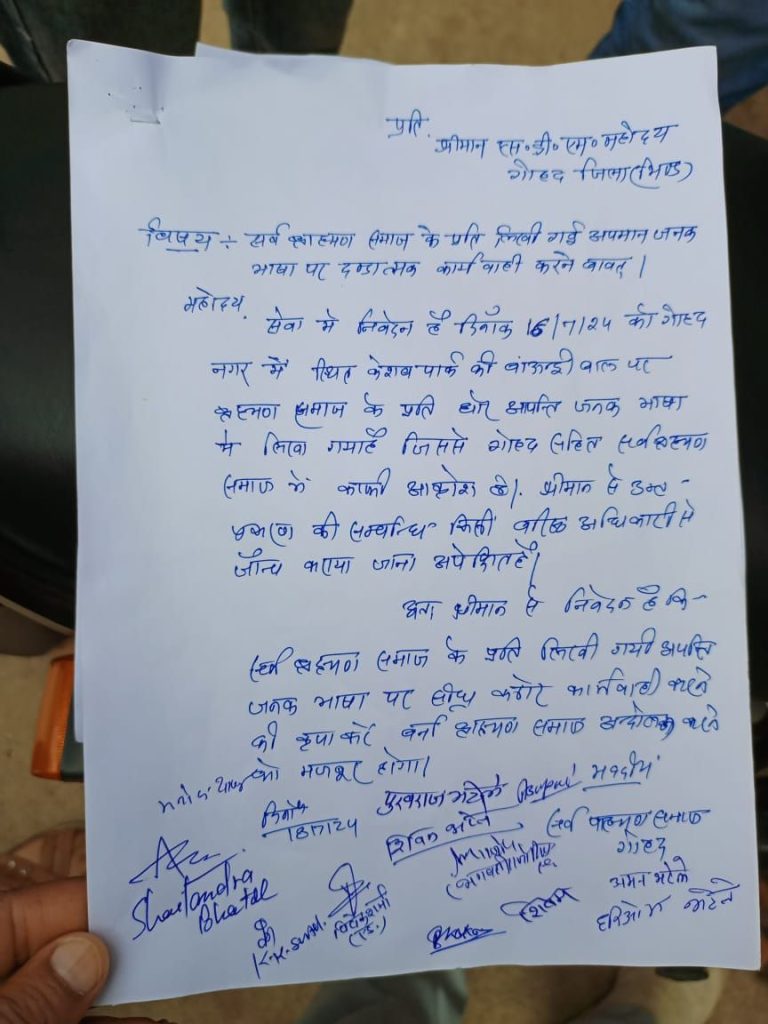 प्रति.
श्रीमान एस.डी.एम. महोदय
गोहद जिला (भिण्ड)
विषय :- सर्व ब्राह्मण समाज के प्रति लिखी गई अपमान जनक
भाषा पर दण्डात्मक कार्यवाही करने बावद।
महोदय,
सेवा में निवेदन है दिनाँक 16/7/24 को गोहद
नगर में स्थित केशव पार्क की बाऊन्ड्री वाल पर
ब्राह्मण समाज के प्रति घोर आपत्ति जनक भाषा
में लिखा गया है जिससे गोहद सहित सर्व ब्राह्मण
समाज में काफी आक्रोश है। श्रीमान से उक्त -
प्रकरण की सम्बन्धि किसी वरिष्ठ अधिकारी से
जाँच कराया जाना अपेक्षित है।
अतः श्रीमान से निवेदन है कि -
सर्व ब्राह्मण समाज के प्रति लिखी गयी आपत्ति
जनक भाषा पर शीघ्र कठोर कार्यवाही करने
की कृपा करें वर्ना ब्राह्मण समाज आन्दोलन करने
को मजबूर होगा।
दिनाँक
18/7/24
पुखराज भटेले
भवदीय
सर्व ब्राह्मण समाज
गोहद
शिवम भटेले
Shailendra
Bhatele
K.K. Sharma
शिवम
अमन भटेले
हरिओम भटेले